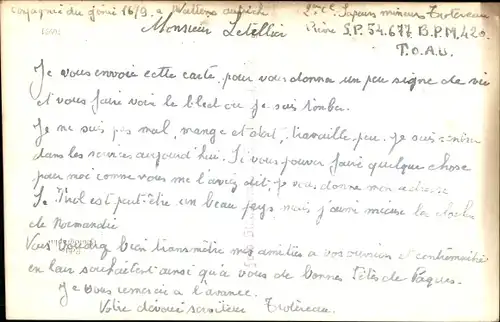 Compagnie du génie 16/9. a Wattens autrich
2ème Cl. Sapeurs mineurs Trotereau
Pierre S.P. 54.677 B.P.M. 420.
T.O.A.B.
Monsieur Letellier
Je vous envoie cette carte, pour vous donner un peu signe de vie
et vous faire voir le bled ou je suis tomber.
Je ne suis pas mal, mange et dort, travaille peu. Je suis rentrer
dans les services aujourd'hui. Si vous pouvez faire quelque chose
pour moi comme vous me l'aviez dit. Je vous donne mon adresse
Le Tirol est peut-être un beau pays mais j'aime mieux la cloche
de Normandie
Vous voudrez bien transmettre mes amitiés a vos ouvriers et contremaitre
en leur souhaitent ainsi qu'a vous de bonnes fêtes de Paques.
Je vous remercie a l'avance.
Votre dévoué serviteur Trotereau.